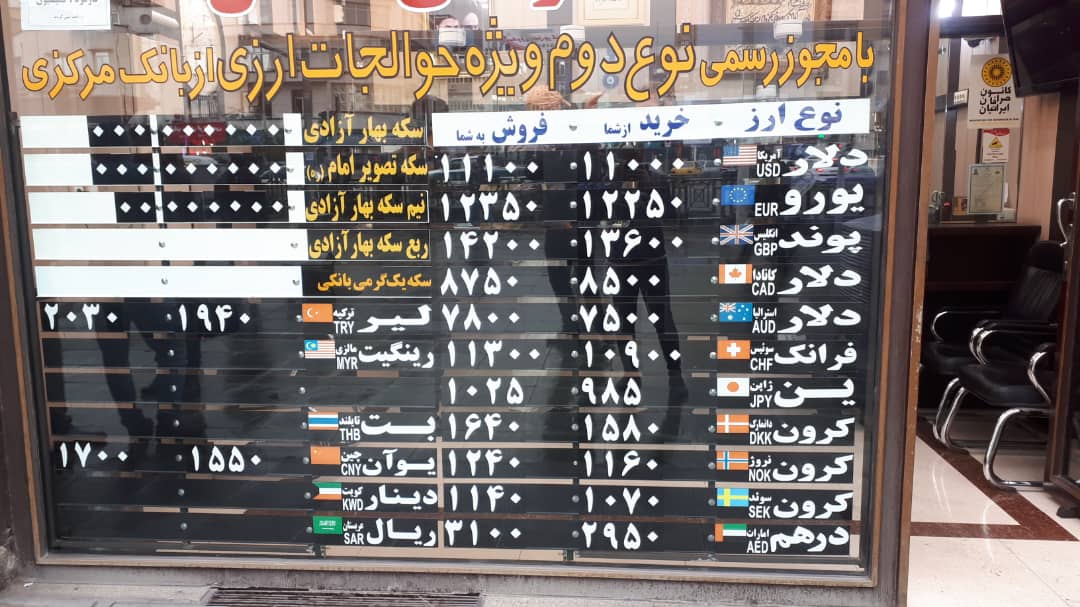 با مجوز رسمی نوع دوم ویژه حوالجات ارزی از بانک مرکزی
نوع ارز خرید از شما فروش به شما
دلار آمریکا USD ۱۱۰۰۰ ۱۱۱۰۰
یورو EUR ۱۲۲۵۰ ۱۲۳۵۰
پوند انگلیس GBP ۱۳۶۰۰ ۱۴۲۰۰
دلار کانادا CAD ۸۵۰۰ ۸۷۵۰
دلار استرالیا AUD ۷۵۰۰ ۷۸۰۰
فرانک سوئیس CHF ۱۰۹۰۰ ۱۱۳۰۰
ین ژاپن JPY ۹۸۵ ۱۰۲۵
کرون دانمارک DKK ۱۵۸۰ ۱۶۴۰
کرون نروژ NOK ۱۱۶۰ ۱۲۴۰
کرون سوئد SEK ۱۰۷۰ ۱۱۴۰
درهم امارات AED ۲۹۵۰ ۳۱۰۰
سکه بهار آزادی
سکه تصویر امام (ره)
نیم سکه بهار آزادی
ربع سکه بهار آزادی
سکه یک گرمی بانکی
لیر ترکیه TRY ۱۹۴۰ ۲۰۳۰
رینگیت مالزی MYR
بت تایلند THB
یوآن چین CNY ۱۵۵۰ ۱۷۰۰
دینار کویت KWD
ریال عربستان SAR
کانون
صرافان
ایرانیان